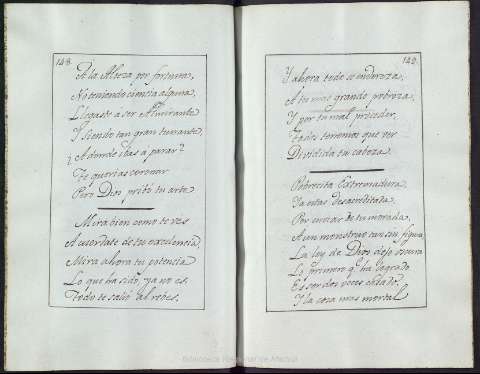 148.
A la Alteza por fortuna,
No teniendo ciencia alguna,
Llegaste a ser Almirante
Y siendo tan gran tunante
¿Adonde ibas a parar?
Te querias coronar
Pero Dios pribó tu arte
Mira bien como te ves
Acuerdate de tu excelencia,
Mira ahora tu potencia
Lo que ha sido, ya no es,
Todo te salió al rebes.
149.
Y ahora todo se endereza,
A tu mas grande pobreza,
Y por tu mal proceder,
Todos tenemos que ver
Dividida tu cabeza.
Pobrecita Extremadura,
Ya estas desacreditada,
Por criar de tu morada,
A un monstruo tan sin figura
La ley de Dios dejó oscura
Lo primero q.e ha logrado
Es ser dos veces casado,
Y la cosa mas mortal
Biblioteca Regional de Madrid